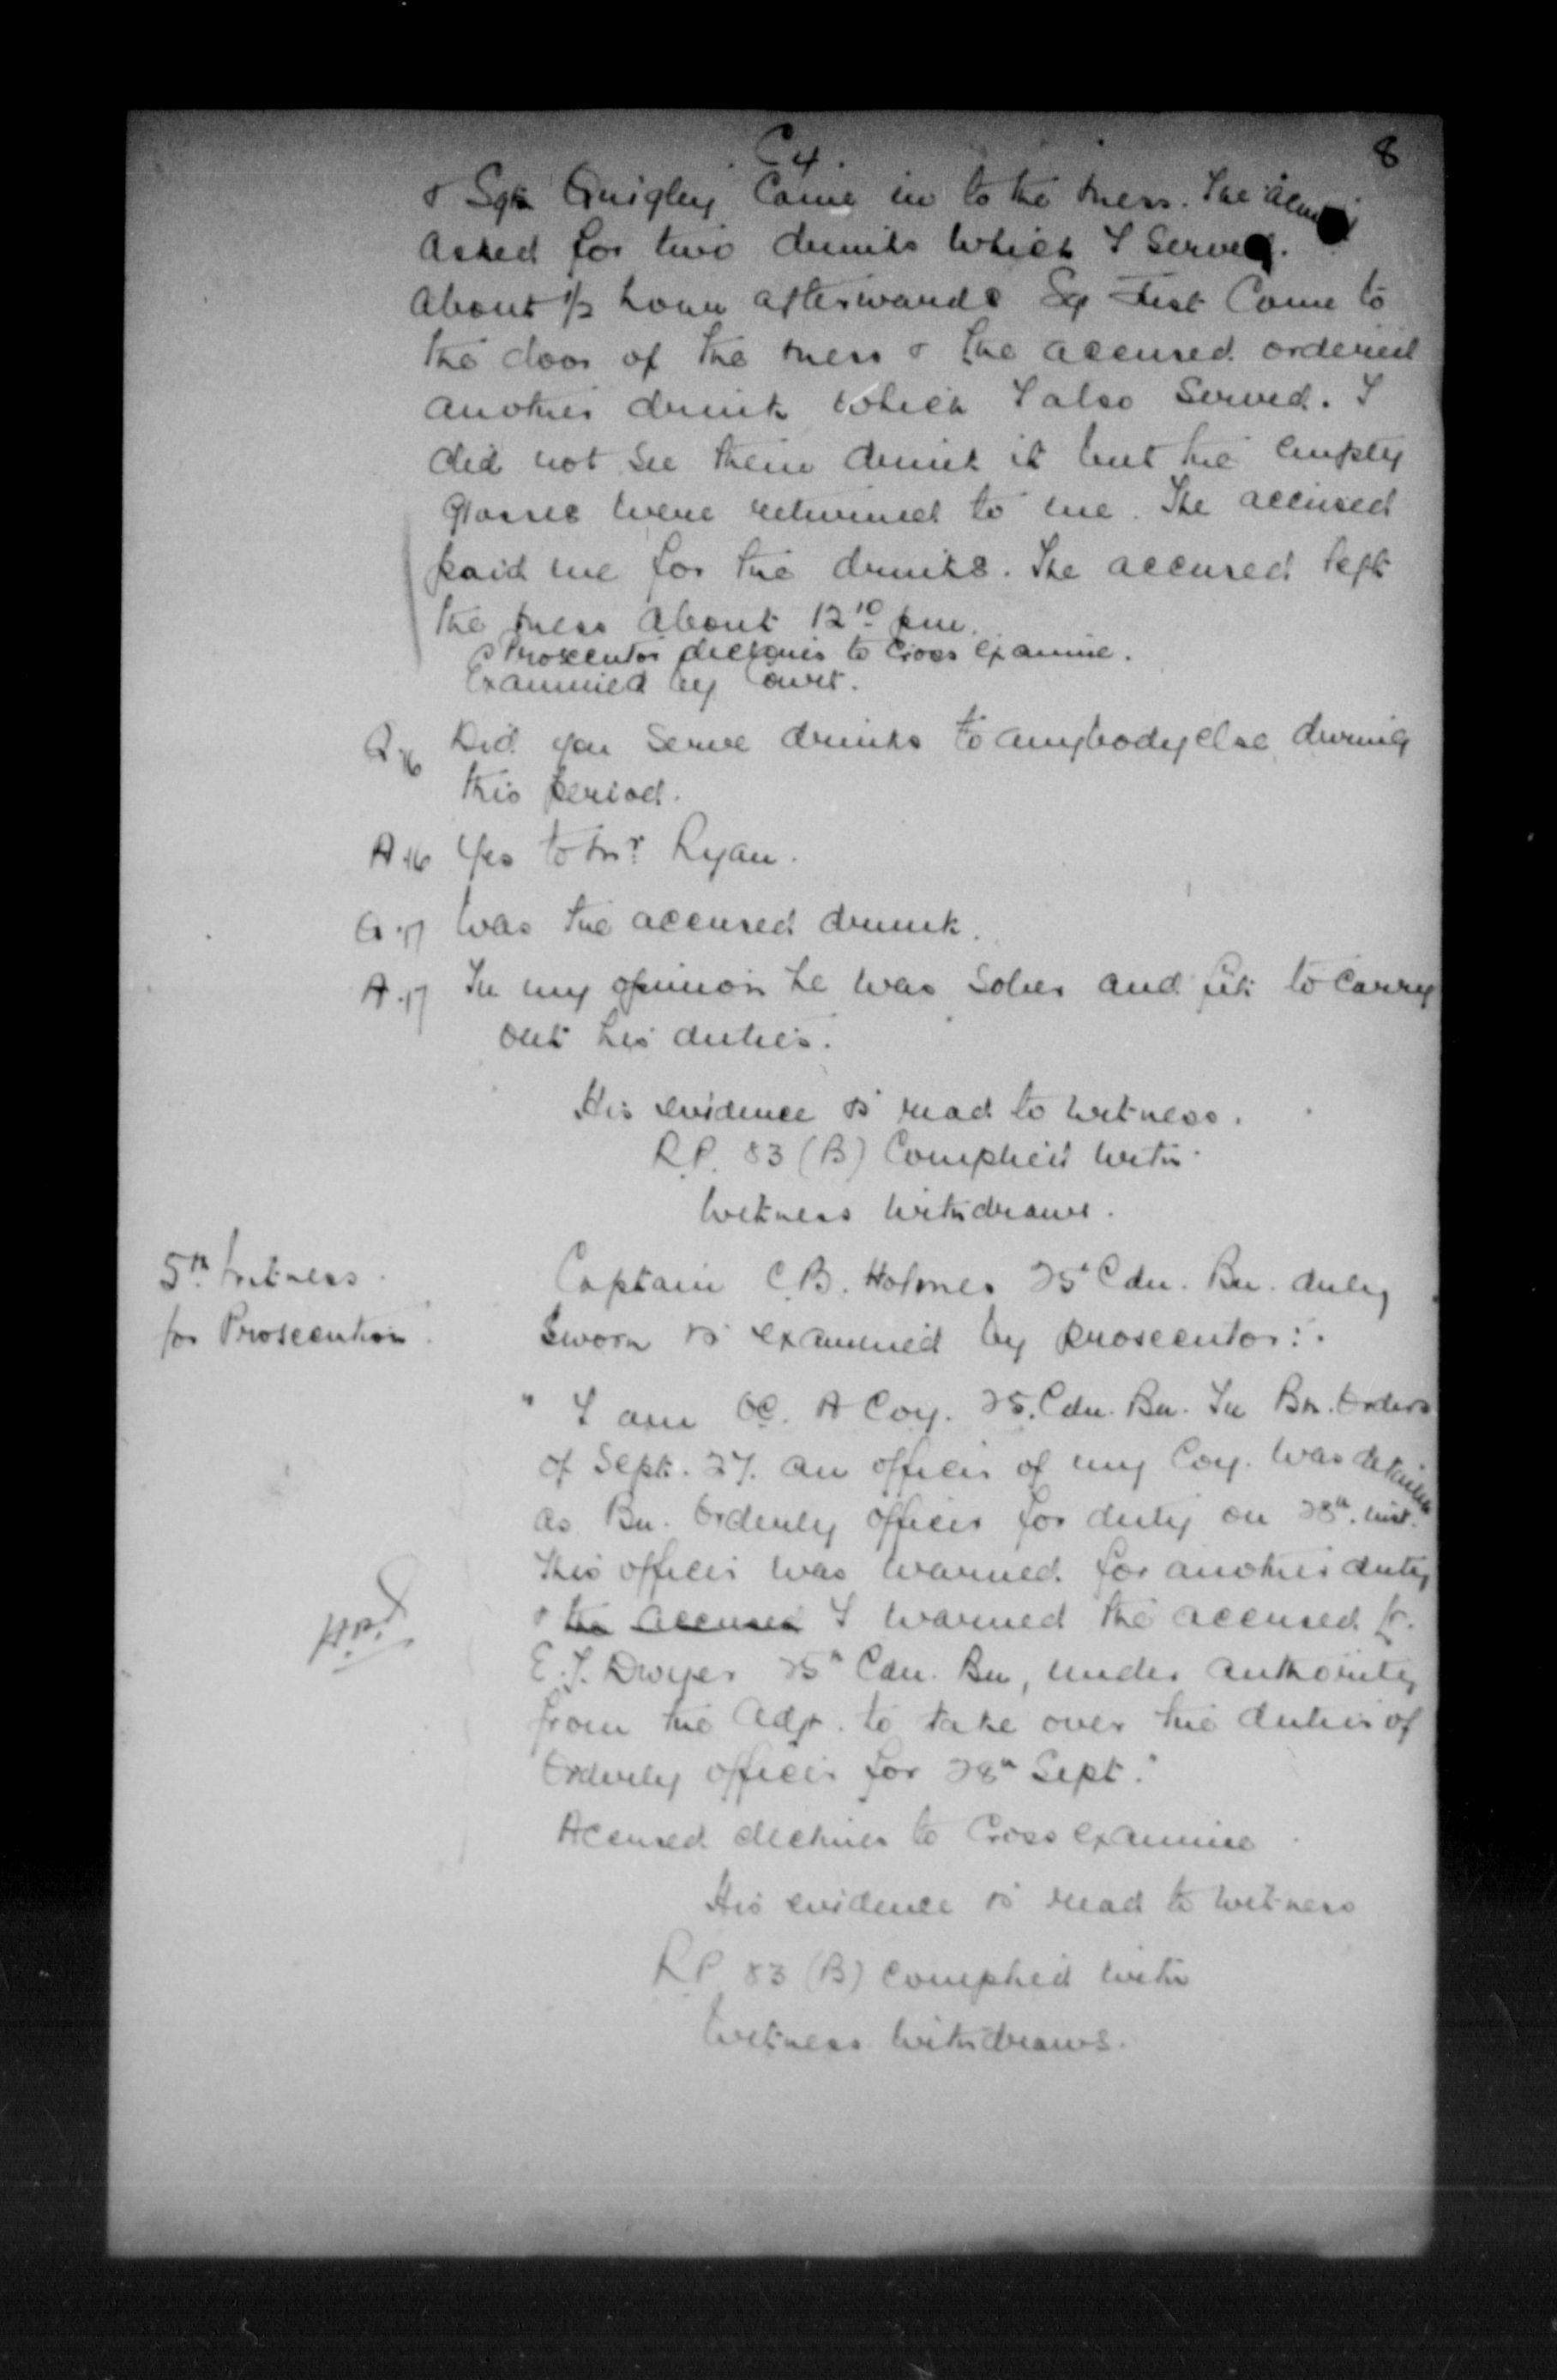 C4.
8
& Sgt Quigley came in to the mess. The accused
asked for two drinks which I served.
About ½ hour afterwards Sgt Fist came to
the door of the mess & the accused ordered
another drink which I also served. I
did not see them drink it but the empty
glasses were returned to me. The accused
paid me for the drinks. The accused left
the mess about 12¹⁰ pm.
Prosecutor declines to cross examine.
Examined by Court.
Q.16 Did you serve drinks to anybody else during
this period.
A.16 Yes to Mr. Ryan.
Q.17 Was the accused drunk.
A.17 In my opinion he was sober and fit to carry
out his duties.
His evidence is read to witness.
R.P. 83 (B) Complied with.
Witness withdraws.
5th Witness
for Prosecution.
Captain C.B. Holmes 25th Cdn. Bn. duly
sworn is examined by prosecutor:.
" I am OC. A Coy. 25. Cdn. Bn. In Bn. Orders
of Sept. 27. an officer of my Coy. was detailed
as Bn. Orderly officer for duty on 28th. inst.
This officer was warned for another duty
& the accused I warned the accused Lt.
E.J. Dwyer 25th Cdn. Bn, under authority
from the Adjt. to take over the duties of
Orderly officer for 28th Sept."
Accused declines to cross examine
His evidence is read to witness
R.P. 83 (B) complied with
Witness withdraws.